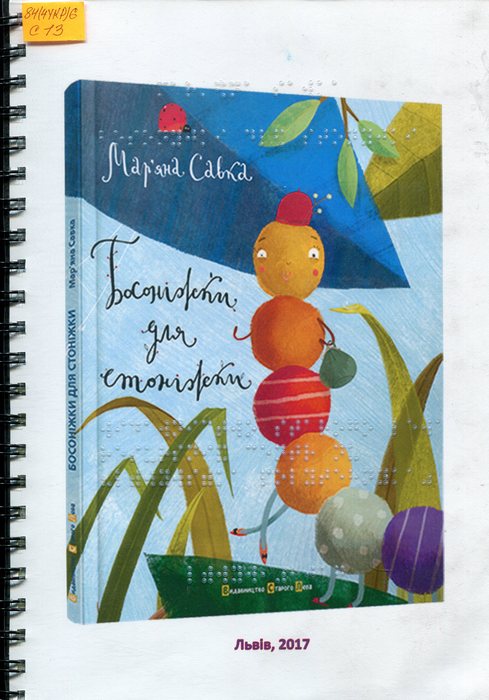 84(4УКР)6
С 13
Мар'яна Савка
Босоніжки
для
стоніжки
БОСОНІЖКИ ДЛЯ СТОНІЖКИ Мар'яна Савка
Видавництво Старого Лева
Львів, 2017